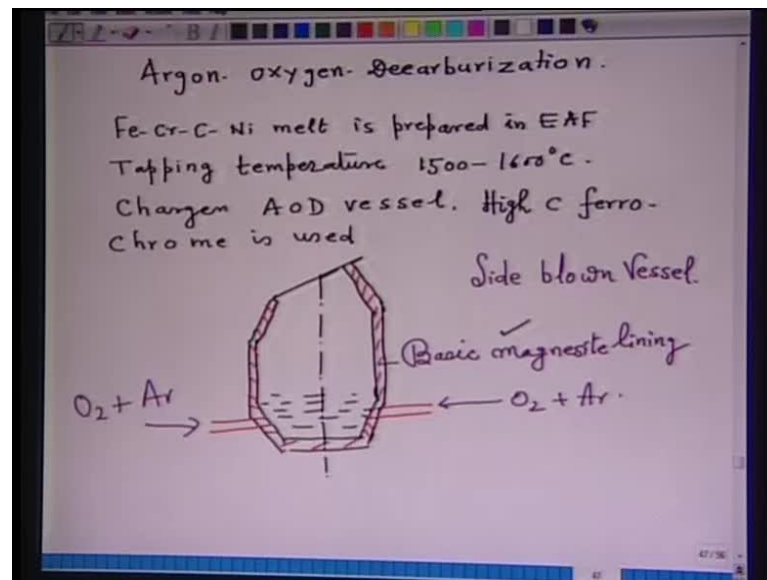 Argon- oxygen- Decarburization.
Fe-Cr-C-Ni melt is prepared in EAF
Tapping temperature 1500-1600°C.
Chargen AOD vessel. High C ferro-
Chrome is used
Side blown Vessel.
Basic magnesite lining
O2 + Ar
O2 + Ar.
47/56